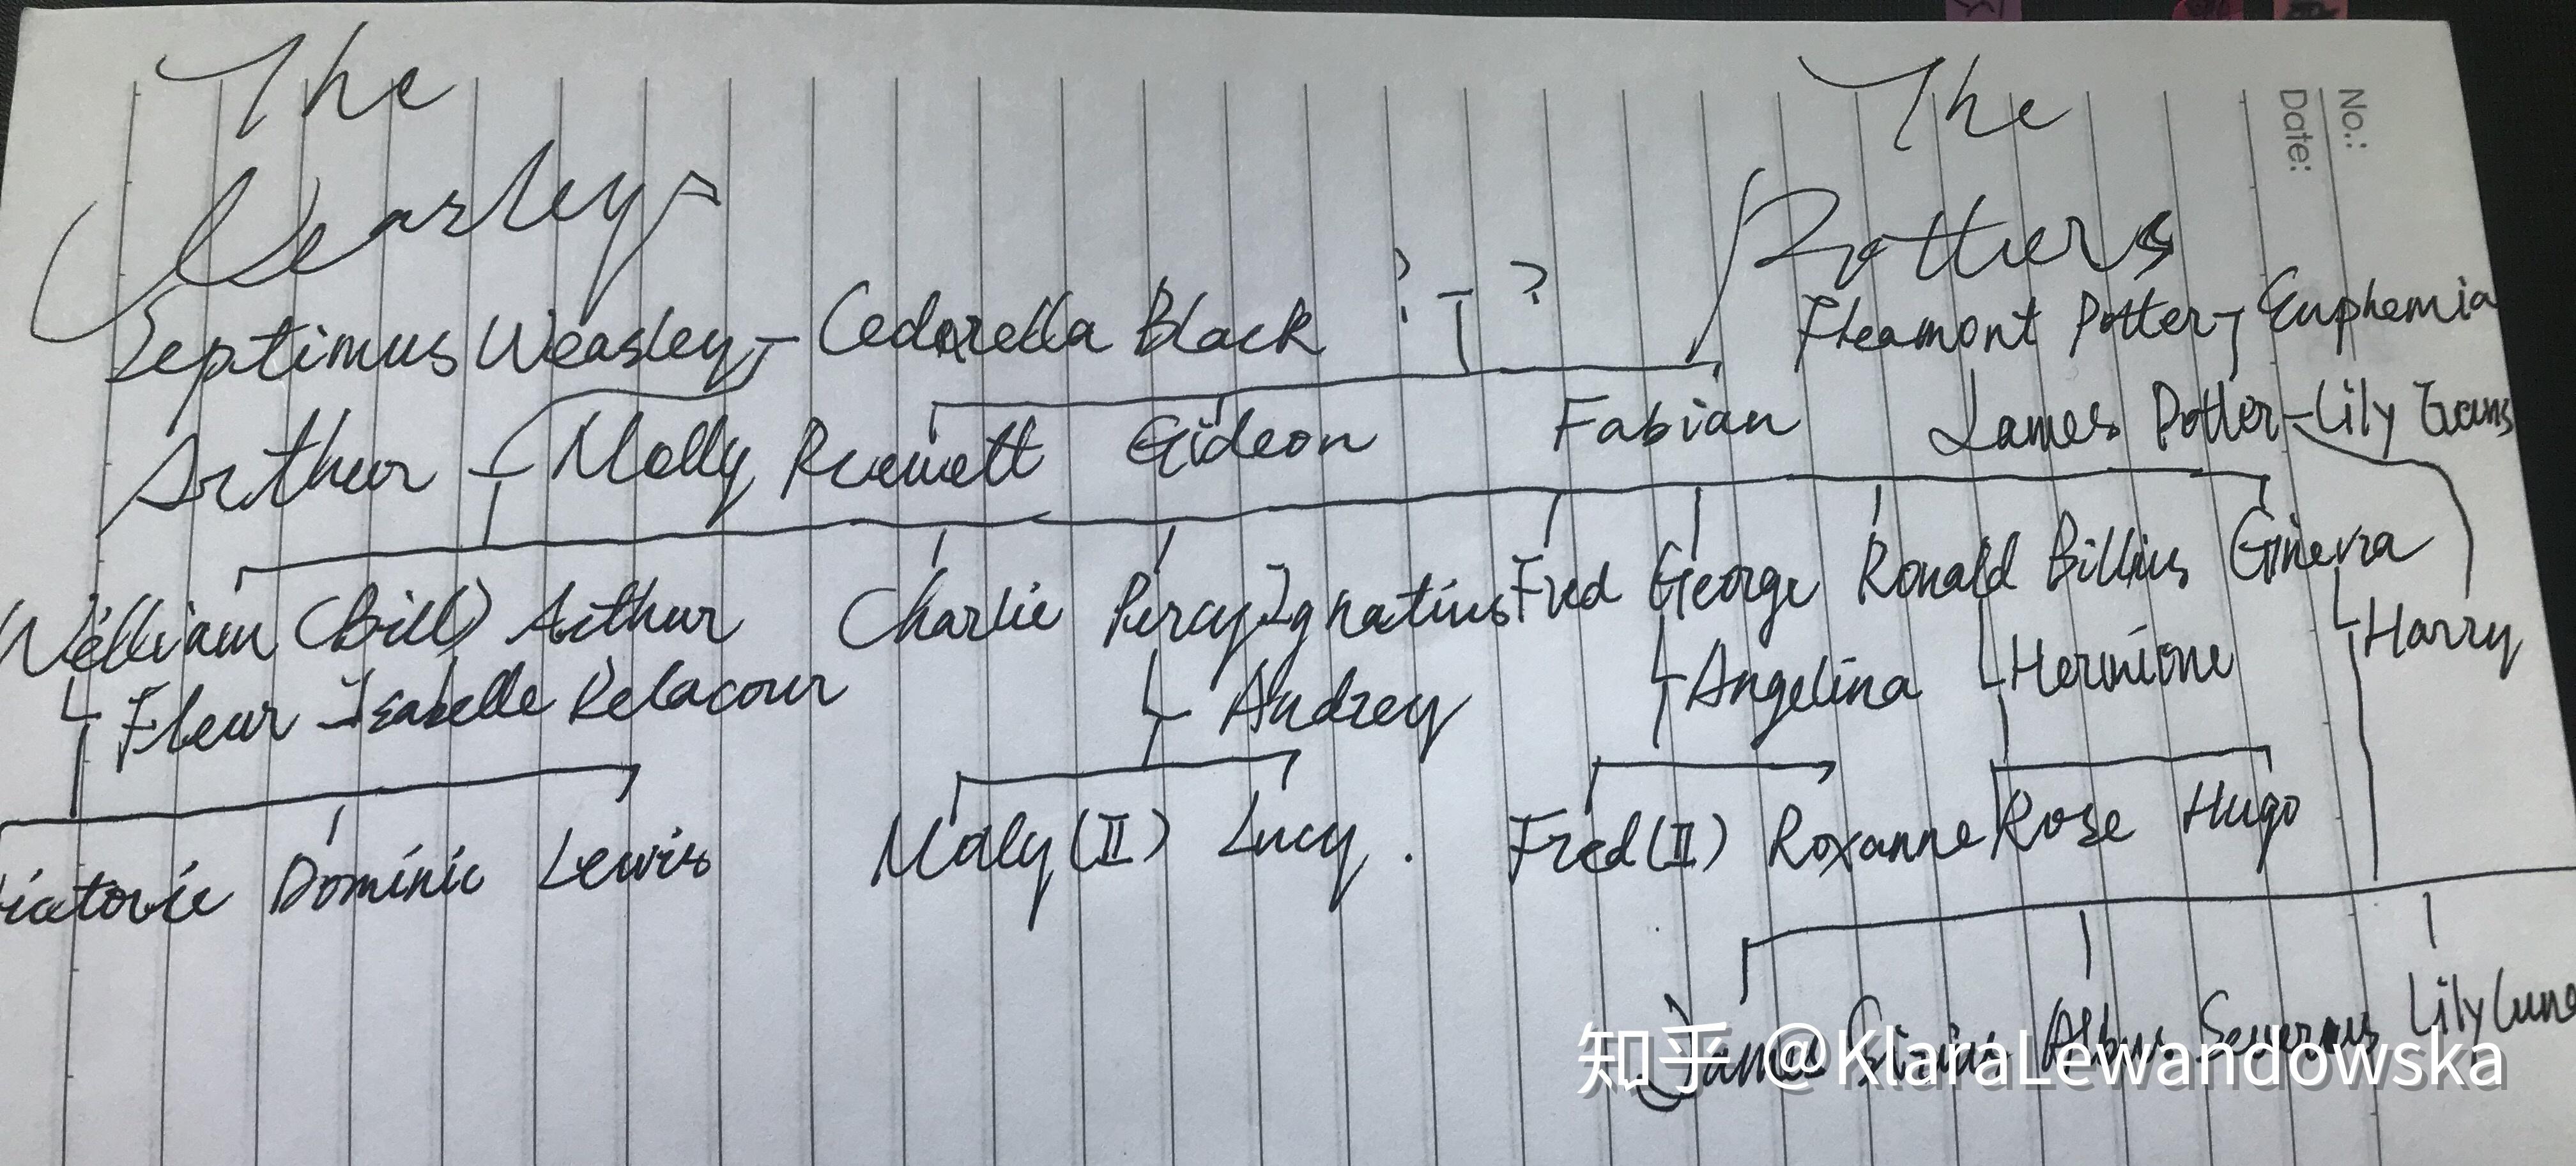 The
Weasleys
The
Potters
No.:
Date:
Septimus Weasley - Cedarella Black ? - ? Fleamont Potter - Euphemia
Arthur - Molly Prewett Gideon Fabian James Potter - Lily Evans
William (Bill) Arthur Charlie Percy Ignatius Fred George Ronald Billius Ginevra
Fleur Isabelle Delacour Audrey Angelina Hermione Harry
Dominic Lewis Molly (II) Lucy. Fred (II) Roxanne Rose Hugo
James Sirius Albus Severus Lily Luna
知乎 @KlaraLewandowska